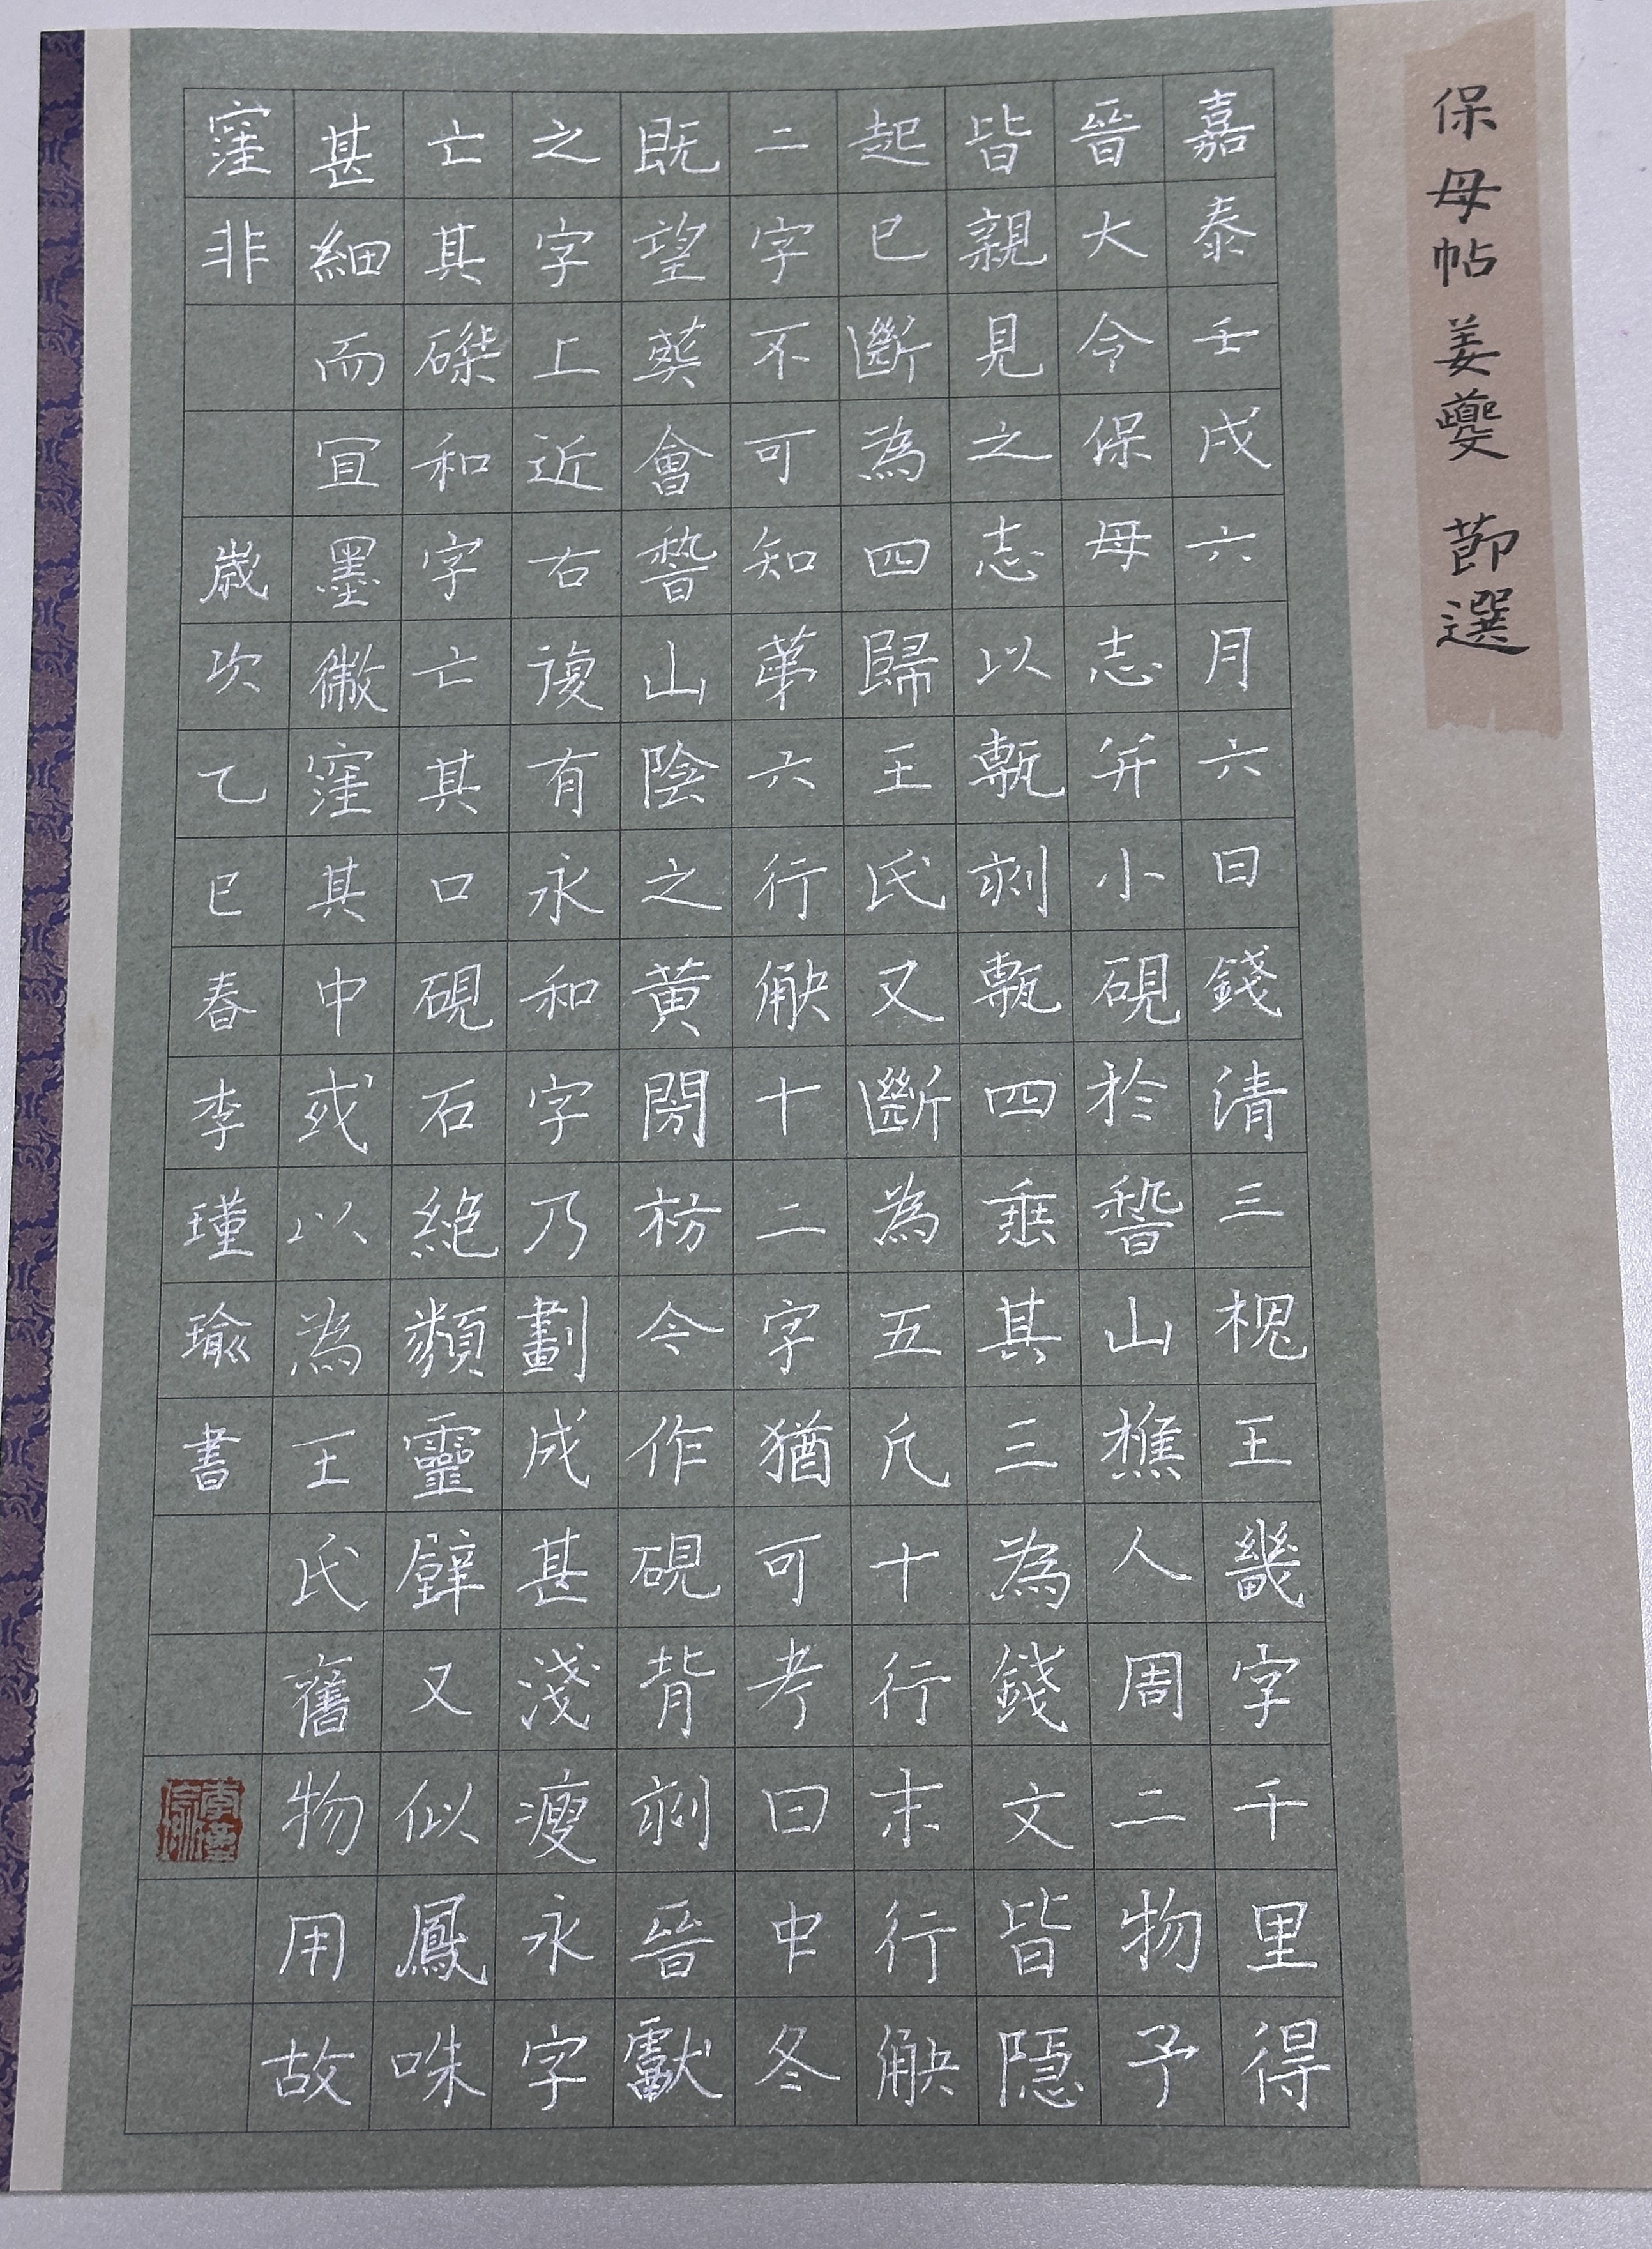 保母帖 姜夔 節選
嘉泰壬戌六月六日錢清三槐王畿字千里得
晉大令保母志并小硯於稽山樵人周二物予
皆親見之志以甎刻甎四垂其三為錢文皆隱
起已斷為四歸王氏又斷為五凡十行末行缺
二字不可知第六行缺十二字猶可考曰中冬
既望葬會稽山陰之黃閍枋今作硯背刻晉獻
之字上近右復有永和字乃劃成甚淺瘦永字
亡其磔和字亡其口硯石絶類靈壁又似鳳咮
甚細而宜墨微窪其中或以為王氏舊物用故
窪非 歲次乙巳春李瑾瑜書